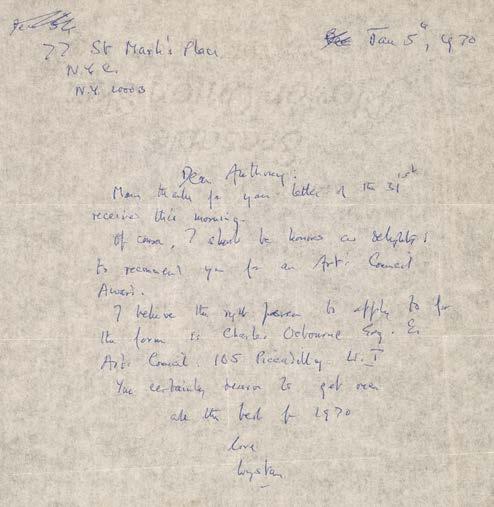 77 St Mark's Place
Jan 5th, 1970
N.Y.C.
N.Y. 10003
Dear Anthony,
Many thanks for your letter of the 31st
received this morning.
Of course, I should be honored and delighted
to recommend you for an Arts Council
Award.
I believe the right person to apply to for
the form is Charles Osbourne Esq.
Arts Council. 105 Piccadilly W.I
You certainly deserve to get one
all the best for 1970
love
Wystan